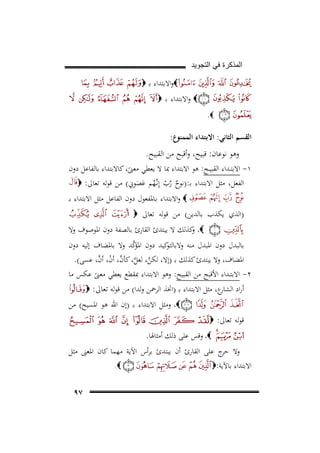 المذكرة في التجويد
﴿يُخَٰدِعُونَ ٱللَّهَ وَٱلَّذِينَ ءَامَنُواْ﴾ والابتداء بـ ﴿وَلَهُمۡ عَذَابٌ أَلِيمُۢ بِمَا
كَانُواْ يَكۡذِبُونَ ۝﴾ والابتداء بـ ﴿أَلَآ إِنَّهُمۡ هُمُ ٱلسُّفَهَآءُ وَلَٰكِن لَّا
يَعۡلَمُونَ ۝﴾.
القسم الثاني: الابتداء الممنوع:
وهو نوعان: قبيح، وأقبح من القبيح.
١- الابتداء القبيح: هو الابتداء بما لا يعطي معنىً، كالابتداء بالفاعل دون
الفعل، مثل الابتداء بـ:(نوحٌ رَّبِّ إِنَّهم عصوني) من قوله تعالى: ﴿قَالَ
نُوحٞ رَّبِّ إِنَّهُمۡ عَصَوۡنِي﴾ والابتداء بالمفعول دون الفاعل مثل الابتداء بـ
(الذي يكذب بالدين) من قوله تعالى ﴿أَرَءَيۡتَ ٱلَّذِي يُكَذِّبُ
بِٱلدِّينِ ۝﴾. وكذلك لا يبتدئ القارئ بالصفة دون الموصوف ولا
بالبدل دون المبدل منه ولابالتوكيد دون المؤكَّد. ولا بالمضاف إليه دون
المضاف، ولا يبتدئ كذلك بـ (إلا، لكنَّ، لعلَّ، كأنَّ، أن، أنَّ، عسى).
٢- الابتداء الأقبح من القبيح: وهو الابتداء بمقطع يعطي معنىً عكس ما
أراد الشارع، مثل الابتداء بـ (اتخذ الرحمن ولدا) من قوله تعالى: ﴿وَقَالُواْ
ٱتَّخَذَ ٱلرَّحۡمَٰنُ وَلَدٗا ۝﴾. ومثل الابتداء بـ (إن الله هو المسيح) من
قوله تعالى: ﴿لَّقَدۡ كَفَرَ ٱلَّذِينَ قَالُوٓاْ إِنَّ ٱللَّهَ هُوَ ٱلۡمَسِيحُ
ٱبۡنُ مَرۡيَمَ﴾. وقس على ذلك أمثالها.
ولا حرج على القارئ أن يبتدئ برأس الآية مهما كان المعنى مثل
الابتداء بالآية:﴿ٱلَّذِينَ هُمۡ عَن صَلَاتِهِمۡ سَاهُونَ ۝﴾.
٩٧